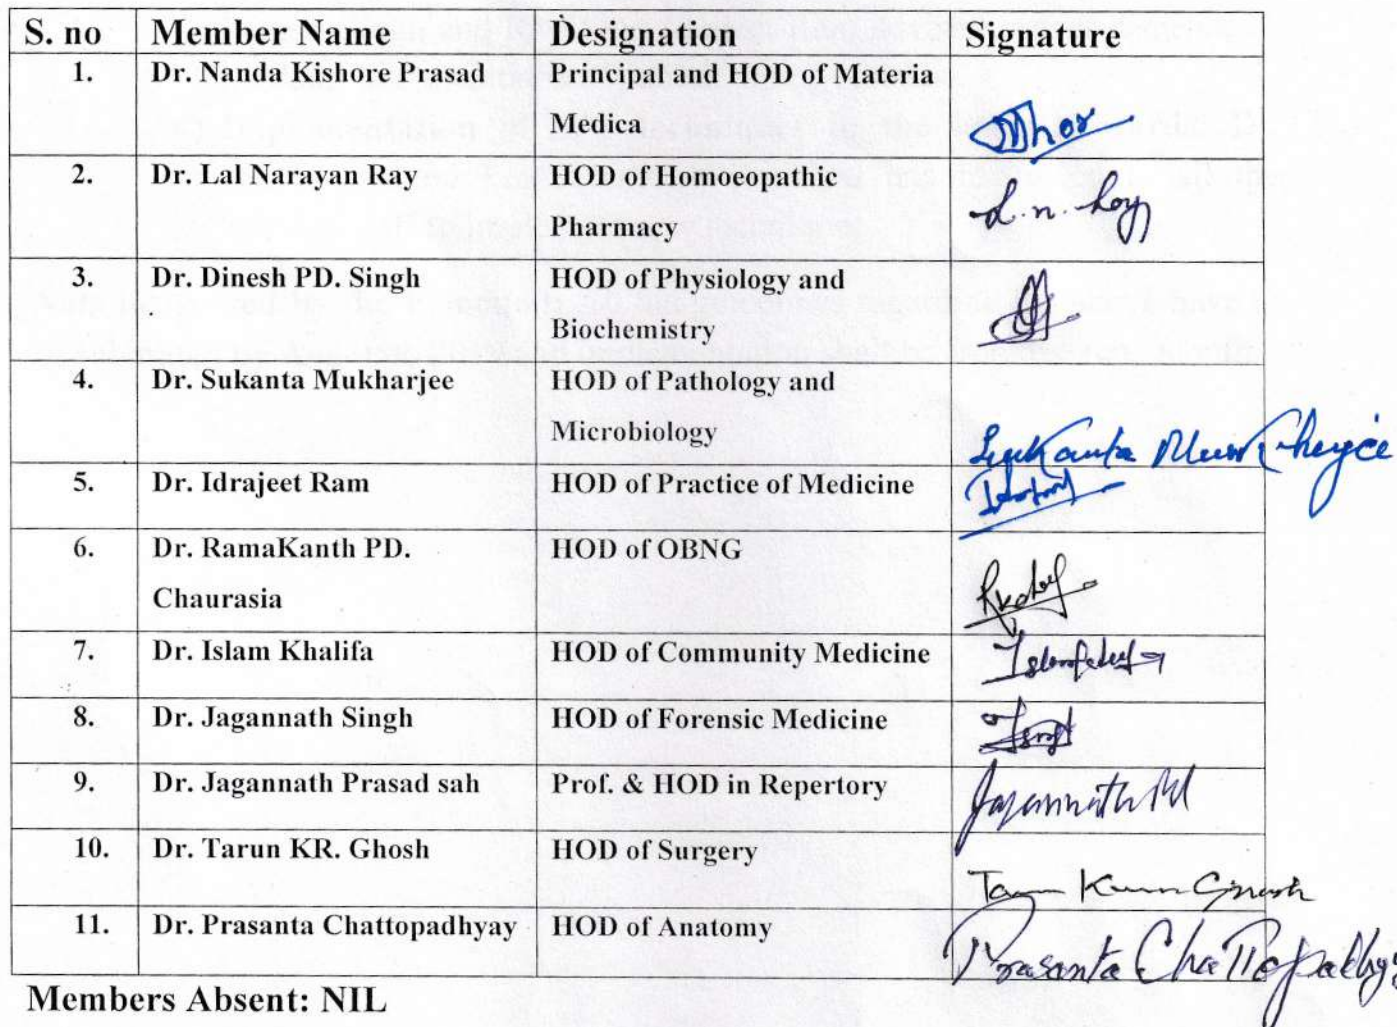 S. no Member Name Designation Signature
1. Dr. Nanda Kishore Prasad Principal and HOD of Materia
Medica
2. Dr. Lal Narayan Ray HOD of Homoeopathic
Pharmacy L.n. Roy
3. Dr. Dinesh PD. Singh HOD of Physiology and
Biochemistry
4. Dr. Sukanta Mukharjee HOD of Pathology and
Microbiology Sukanta Mukherjee
5. Dr. Idrajeet Ram HOD of Practice of Medicine
6. Dr. RamaKanth PD. HOD of OBNG
Chaurasia
7. Dr. Islam Khalifa HOD of Community Medicine
8. Dr. Jagannath Singh HOD of Forensic Medicine
9. Dr. Jagannath Prasad sah Prof. & HOD in Repertory Jagannath
10. Dr. Tarun KR. Ghosh HOD of Surgery
Tarun Kumar Ghosh
11. Dr. Prasanta Chattopadhyay HOD of Anatomy
Prasanta Chattopadhyay
Members Absent: NIL